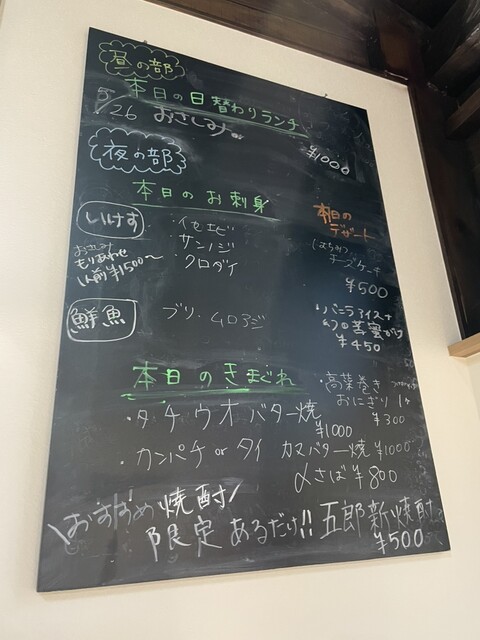 昼の部
本日の日替わりランチ
5/26 おさしみ。
¥1000
夜の部
本日のお刺身
いけす
・イセエビ
サンノジ
クロダイ
おさしみ
もりあわせ
1人前¥1500〜
鮮魚
ブリ・ムロアジ
本日の
デザート
チーズケーキ
¥500
バニラアイス
¥450
本日のきまぐれ
・タチウオバター焼
¥1000
・カンパチorタイ カマバター焼 ¥1000
〆さば¥800
・高菜巻き
おにぎり 1ヶ
¥300
\おすすめ焼酎/
限定 あるだけ!! 五郎新焼酎
¥500